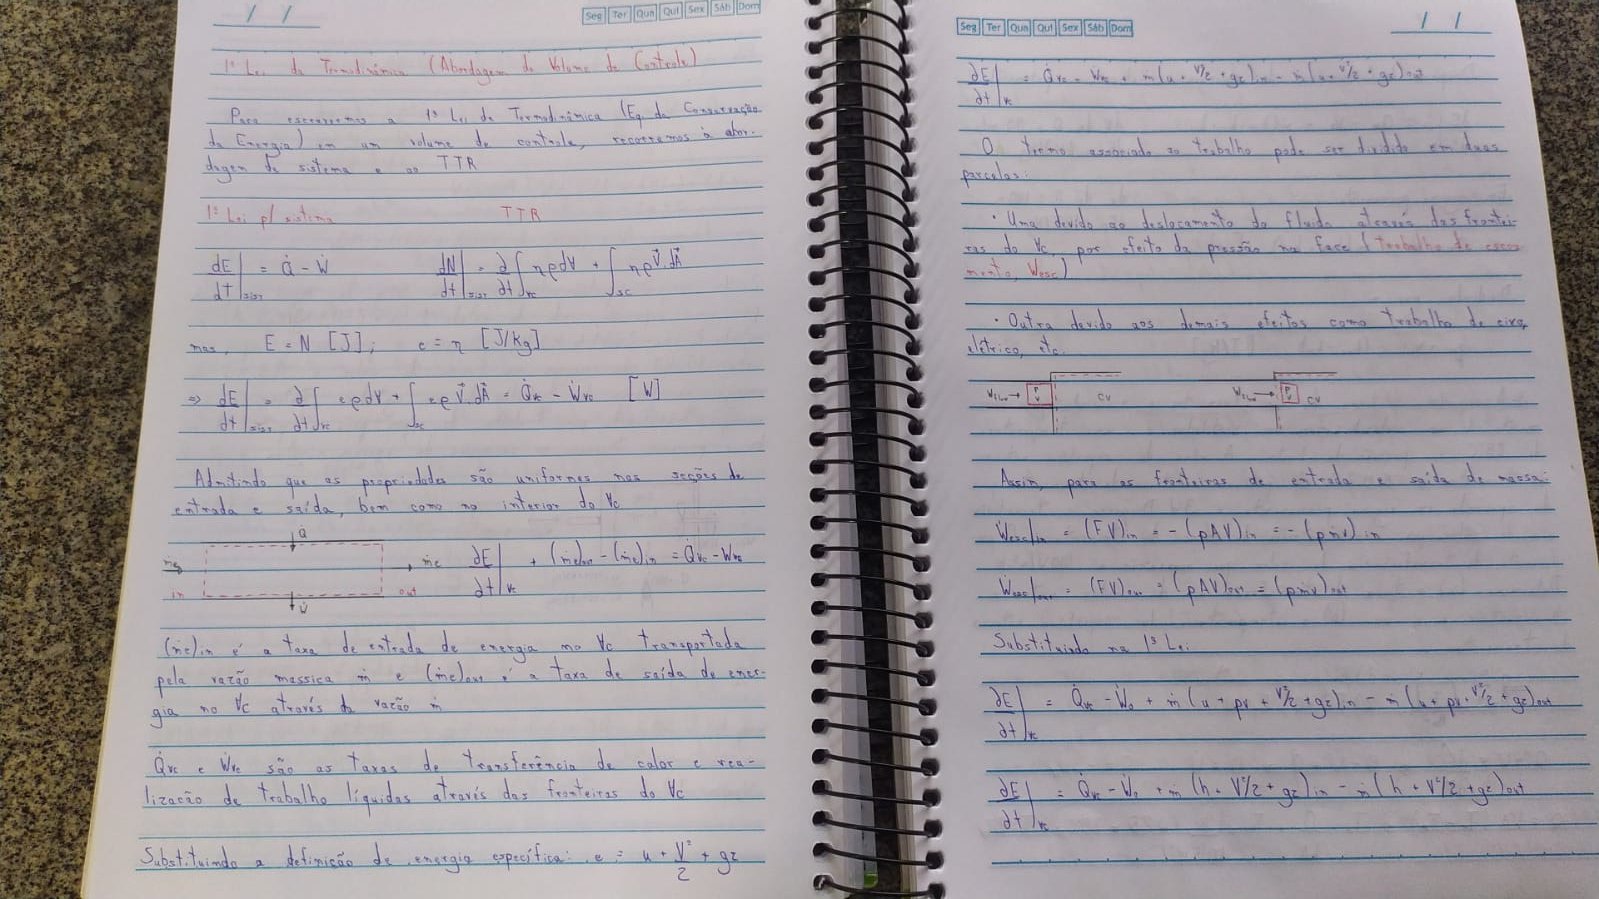 / /
Seg Ter Qua Qui Sex Sáb Dom
1ª Lei da Termodinâmica (Abordagem do Volume de Controle)
Para escrevermos a 1ª Lei da Termodinâmica (Eq. da Conservação
da Energia) em um volume de controle, recorremos à abor-
dagem de sistema e ao TTR
1ª Lei p/ sistema TTR
dE/dt|sist = Q̇ - Ẇ dN/dt|sist = ∂/∂t ∫vc ηρdV + ∫sc ηρV⃗.dA⃗
mas, E = N [J]; e = η [J/kg]
⇒ dE/dt|sist = ∂/∂t ∫vc eρdV + ∫sc eρV⃗.dA⃗ = Q̇vc - Ẇvc [W]
Admitindo que as propriedades são uniformes nas seções de
entrada e saída, bem como no interior do Vc
Q̇
ṁe ṁe ∂E/∂t|vc + (ṁe)out - (ṁe)in = Q̇vc - Ẇvc
in out
Ẇ
(ṁe)in é a taxa de entrada de energia no Vc transportada
pela vazão massica ṁ e (ṁe)out é a taxa de saída de ener-
gia no Vc através da vazão ṁ
Q̇vc e Ẇvc são as taxas de transferência de calor e rea-
lização de trabalho líquidas através das fronteiras do Vc
Substituindo a definição de energia específica: e = u + V²/2 + gz
Seg Ter Qua Qui Sex Sáb Dom
/ /
∂E/∂t|vc = Q̇vc - Ẇvc + ṁ(u + V²/2 + gz)in - ṁ(u + V²/2 + gz)out
O termo associado ao trabalho pode ser dividido em duas
parcelas:
• Uma devido ao deslocamento do fluido através das frontei-
ras do Vc por efeito da pressão na face (trabalho de escoa
mento, Wesc)
• Outra devido aos demais efeitos como trabalho de eixo,
elétrico, etc.
Wflow → P v CV Wflow → P v CV
Assim, para as fronteiras de entrada e saída de massa:
Ẇesc|in = (FV)in = -(pAV)in = -(pṁv)in
Ẇesc|out = (FV)out = (pAV)out = (pṁv)out
Substituindo na 1ª Lei
∂E/∂t|vc = Q̇vc - Ẇo + ṁ(u + pv + V²/2 + gz)in - ṁ(u + pv + V²/2 + gz)out
∂E/∂t|vc = Q̇vc - Ẇo + ṁ(h + V²/2 + gz)in - ṁ(h + V²/2 + gz)out